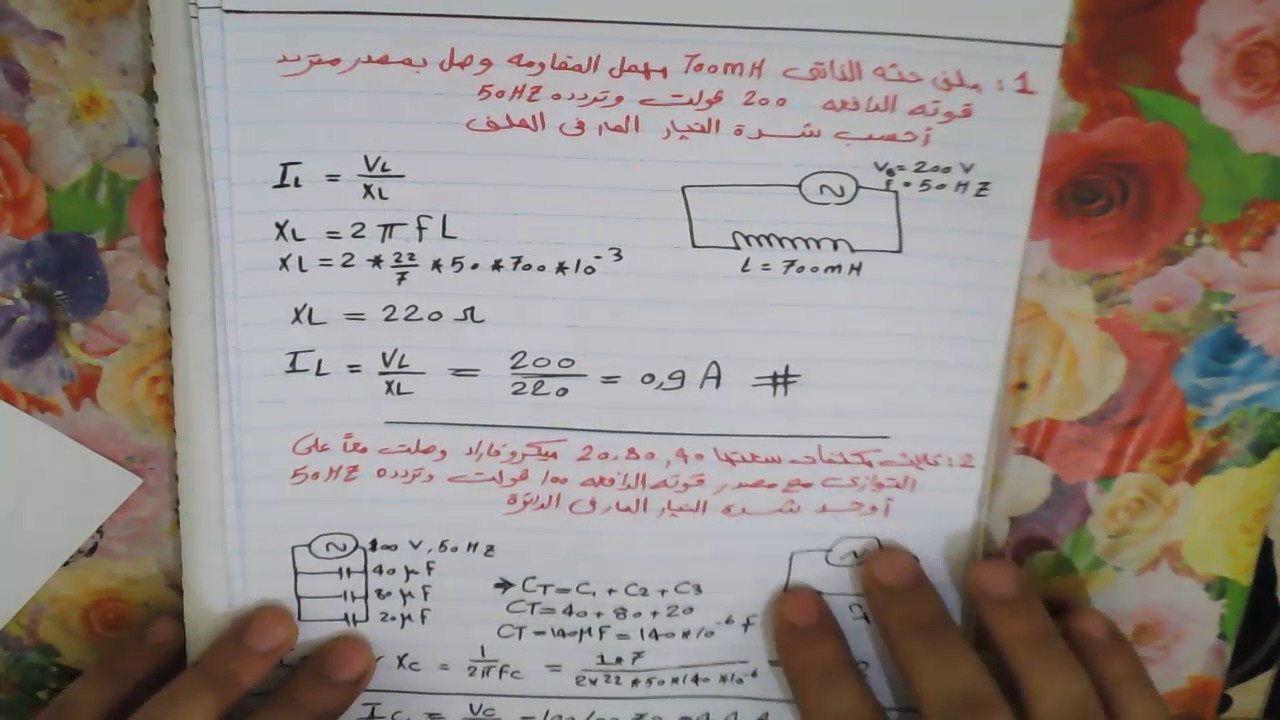 1: ملف حثه الذاتى 700mH مهمل المقاومه وصل بمصدر متردد
قوته الدافعه 200 فولت وتردده 50HZ
أحسب شدة التيار المار فى الملف
IL = VL / XL
V0 = 200 V
f = 50 HZ
XL = 2 π f L
XL = 2 * 22/7 * 50 * 700 * 10^-3
L = 700mH
XL = 220 Ω
IL = VL / XL = 200 / 220 = 0,9 A #
2: ثلاث مكثفات سعتها 40, 80, 20 ميكروفاراد وصلت معاً على
التوازى مع مصدر قوته الدافعه 100 فولت وتردده 50HZ
أوجد شده التيار المار فى الدائرة
100 V, 50 HZ
40 μF
80 μF
20 μF
→ CT = C1 + C2 + C3
CT = 40 + 80 + 20
CT = 140 μF = 140 * 10^-6 F
XC = 1 / 2πfC = 1 * 7 / 2 * 22 * 50 * 140 * 10^-6